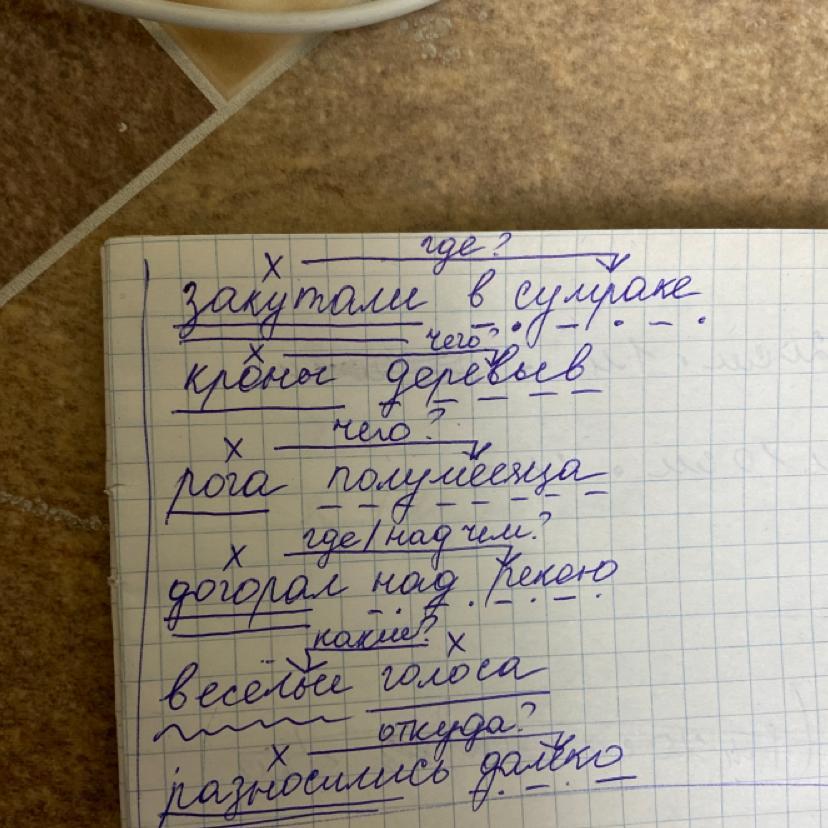 где?
х
закутали в сумраке
чего?
х
кроны деревьев
чего?
х
рога полумесяца
где/над чем?
х
догорал над рекою
какие?
х
весёлые голоса
откуда?
х
разносились далеко